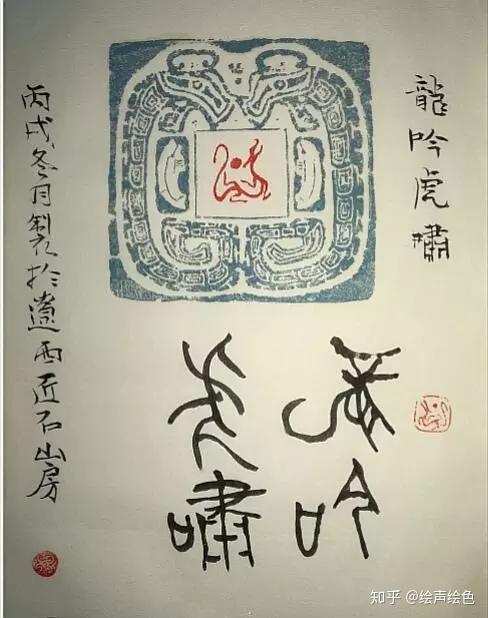 龍吟虎嘯
龍吟
虎嘯
丙戌冬月製於遼西匠石山房
知乎 @绘声绘色